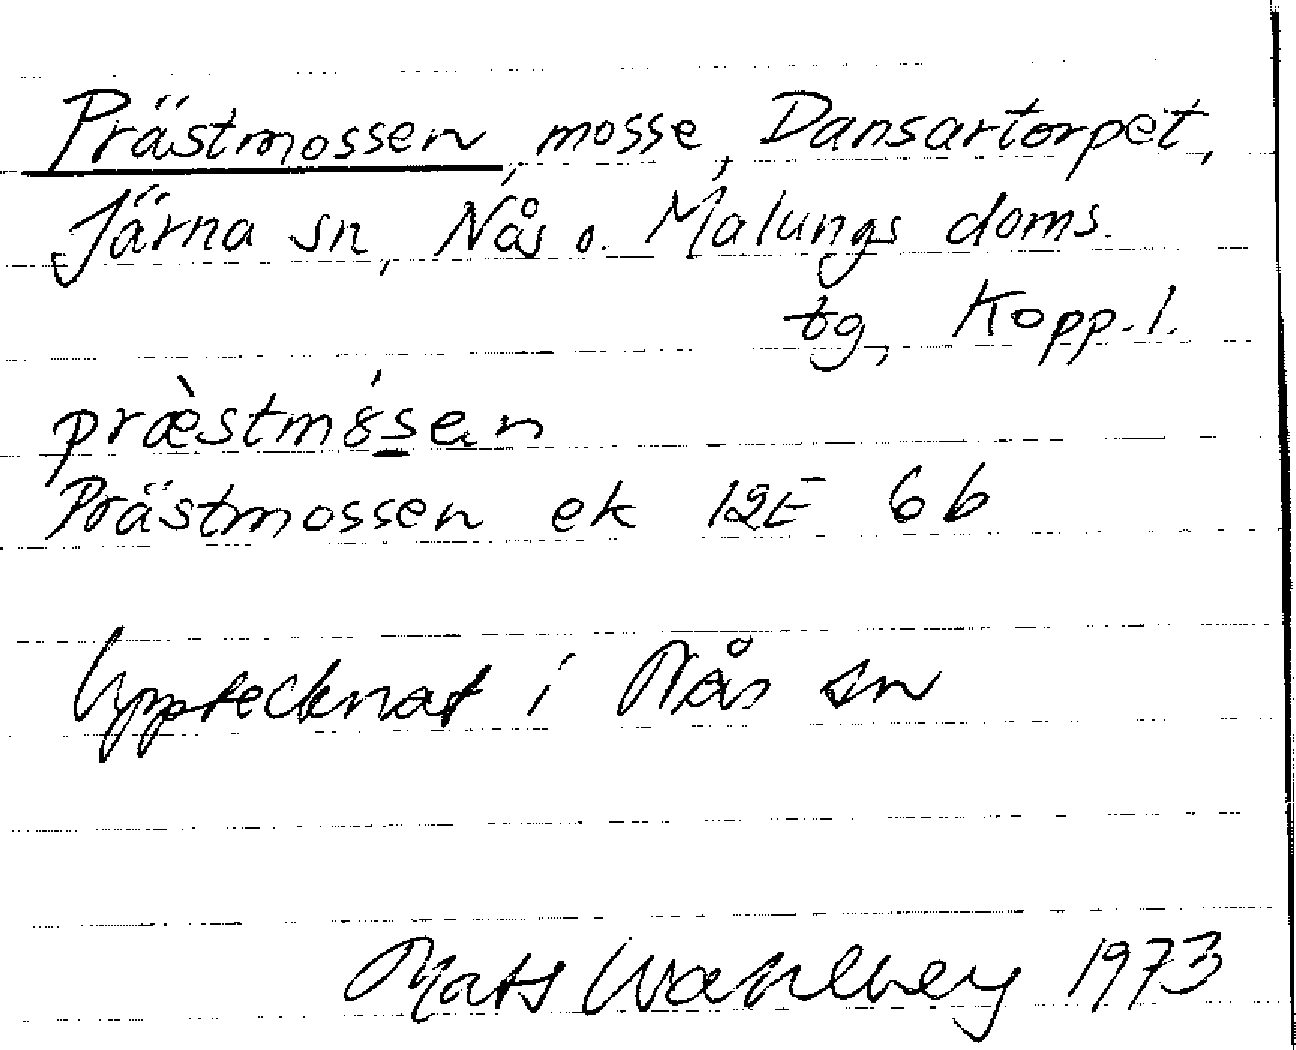 Prästmossen, mosse, Dansartorpet,
Järna sn, Nås o. Malungs doms.
tg, Kopp. l.
præ̀stmósen
Prästmossen ek 12E 6b
Upptecknat i Nås sn
Mats Wahlberg 1973